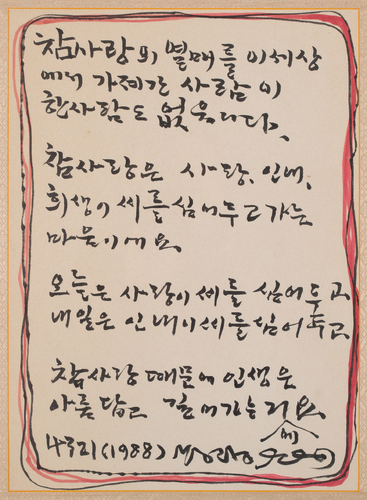 참사랑의 열매를 이세상
에서 가져간 사람이
한사람도 없읍니다.
참사랑은 사랑, 인내,
희생의 씨를 심어두고 가는
마음이에요.
오늘은 사랑의 씨를 심어두고
내일은 인내의 씨를 심어두고
참사랑 때문에 인생은
아름답고 길어가는 거예요
4321(1988)